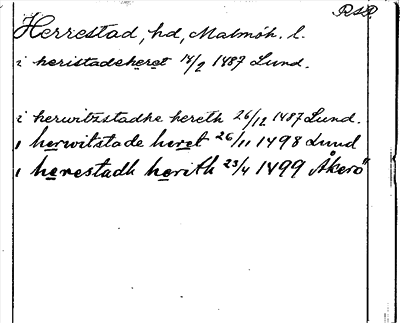 RSP.
Herrestad, hd, Malmöh. l.
i heristadeheret 18/2 1487 Lund.
i herwitzstadhe hereth 26/12 1487 Lund.
i herwitstade heret 26/11 1498 Lund
i herestadh herith 23/4 1499 Åkerö